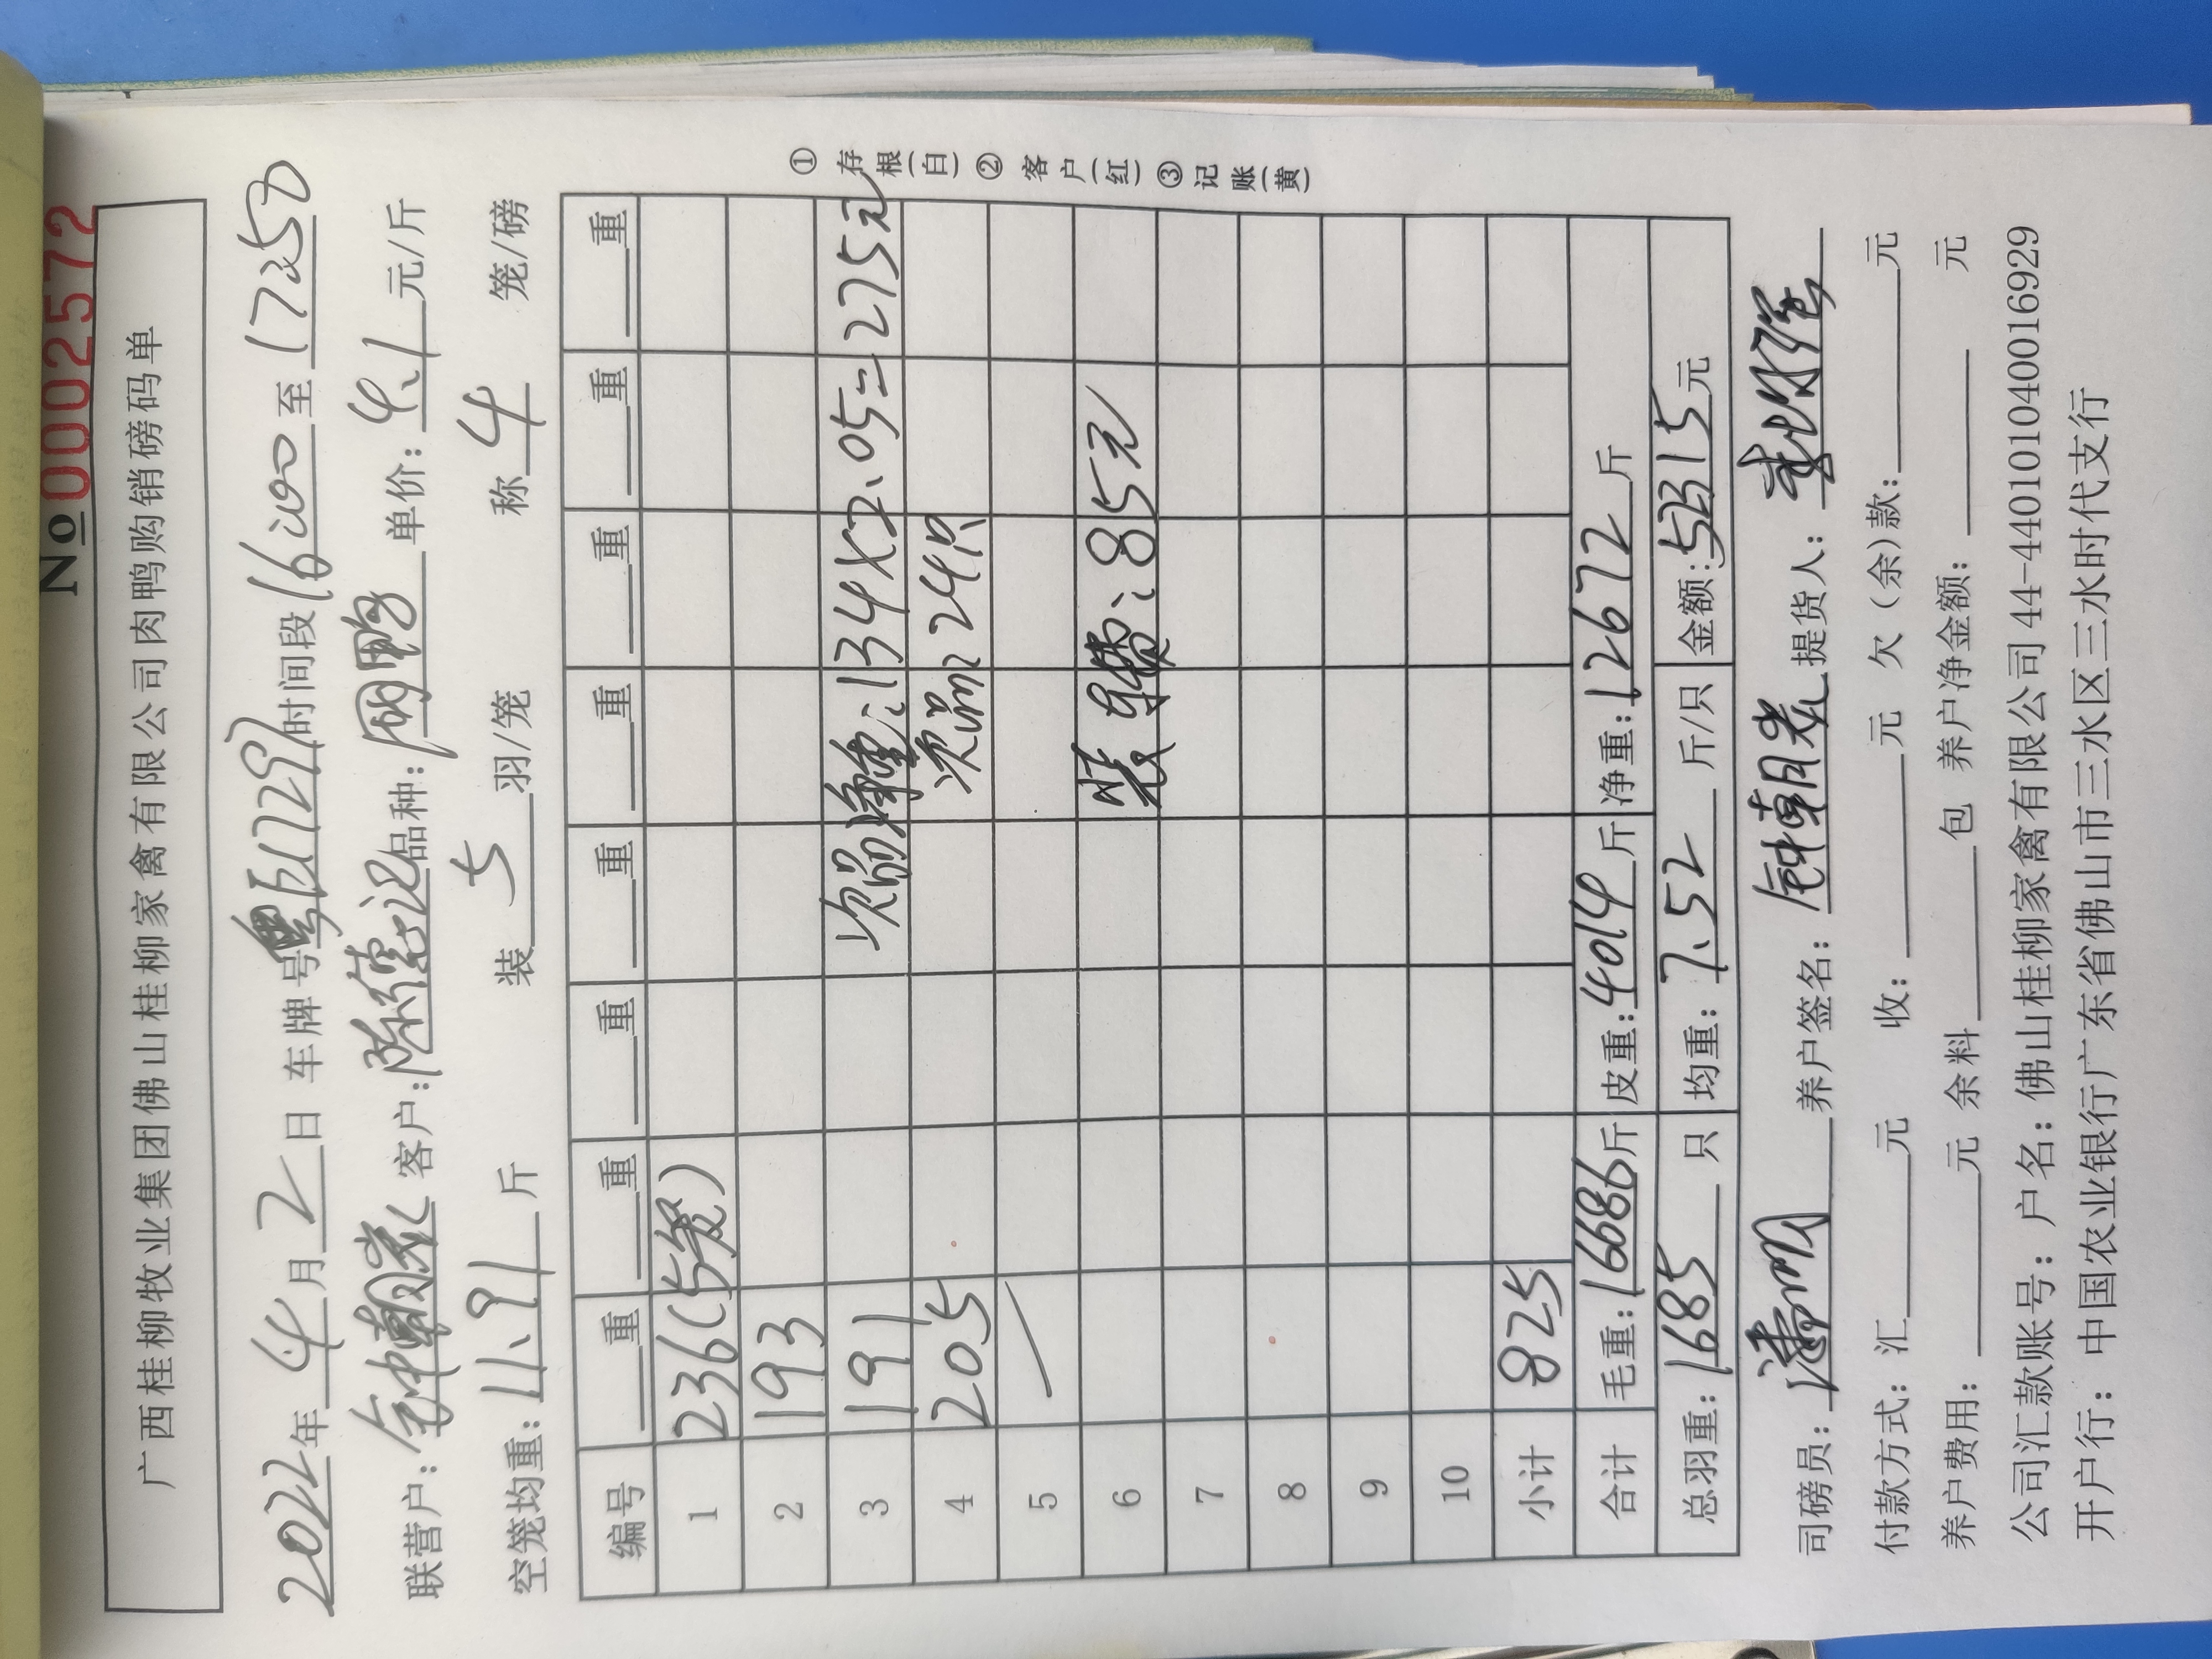 No 0002572
广西桂柳牧业集团佛山桂柳家禽有限公司肉鸭购销磅码单
2022年4月2日 车牌号 粤 时间段16:00至17:50
联营户: 钟朝 客户: 陈德记 品种: 单价: 4.1 元/斤
空笼均重: 11.91 斤 装 5 羽/笼 称 4 笼/磅
编号 重 重 重 重 重 重 重 重
1 236(5笼)
2 193
3 191 次品 重:134×2.05=275元
4 205 次品:24只
5
6 装车费:85元
7
8
9
10
小计 825
合计 毛重:16686斤 皮重:4014斤 净重:12672斤
总羽重:1685只 均重:7.52斤/只 金额:52315元
司磅员: 养户签名: 钟朝 提货人:
付款方式: 汇 元 收: 元 欠(余)款: 元
养户费用: 元 余料 包 养户净金额: 元
公司汇款账号: 户名: 佛山桂柳家禽有限公司 44-440101040016929
开户行: 中国农业银行广东省佛山市三水区三水时代支行
①存根(白)②客户(红)③记账(黄)